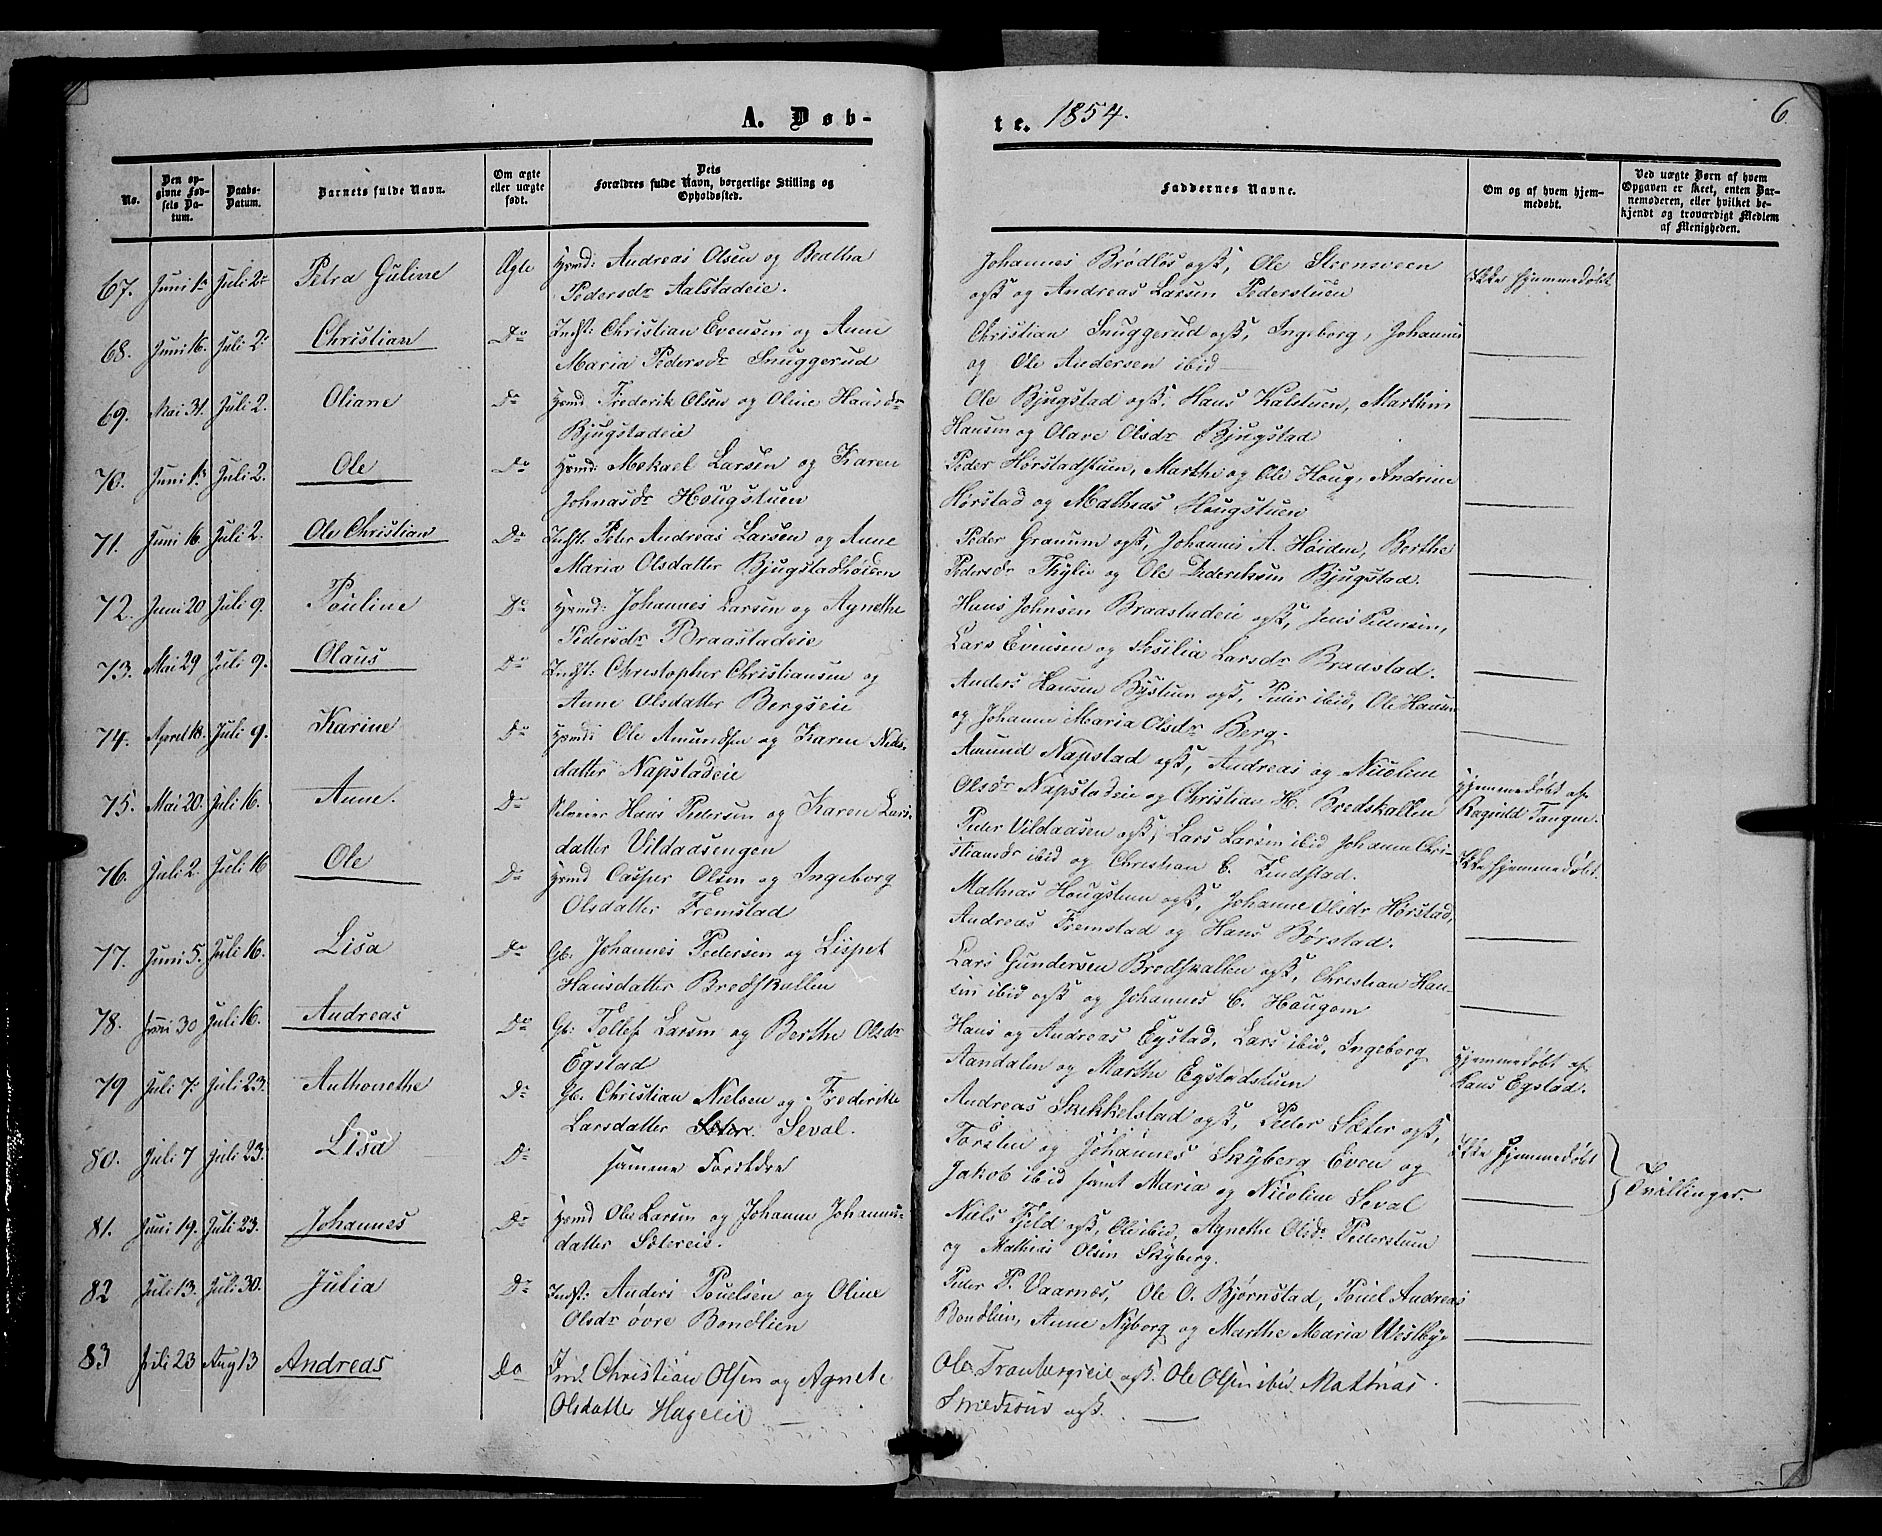 A. Døb-
te. 1854.
6
No.
Den op-
givne Fød-
sels Da-
tum.
Daabs-
Datum.
Barnets fulde Navn.
Om ægte
eller uægte
født.
Dets
Forældres fulde Navn, borgerlige Stilling og
Opholdssted.
Faddernes Navne.
Om og af hvem hjem-
medøbt.
Ved uægte Børn af hvem
Opgaven er skeet, enten Bar-
nemoderen, eller hvilket be-
kjendt og troværdigt Medlem
af Menigheden.
67. Juni 1ste Juli 2den Petra Guline Ægte Hmd: Andreas Olsen og Beatha
Pedersdr Aalstadeie.
Johannes Brødløs ogß, Ole Steensveen
ogß og Andreas Larsen Pederstuen
Ikke hjemmedøbt
68. Juni 16. Juli 2. Christian Do Indst: Christian Evensen og Anne
Maria Pedersdr Snuggerud
Christian Snuggerud ogß, Ingeborg, Johannes
og Ole Andersen ibid
69. Mai 31. Juli 2. Oliane Do Hmd Frederik Olsen og Oline Hansdr
Bjugstadeie
Ole Bjugstad ogß, Hans Kalstuen, Marthin
Hansen og Olave Olsdr Bjugstad
70. Juni 1ste Juli 2. Ole Do Hmd: Mekael Larsen og Karen
Johnasdr Hougstuen
Peder Hørstadstuen, Marthe og Ole Houg, Andrine
Hørstad og Mathias Hougstuen
71. Juni 16. Juli 2. Ole Christian Do Indst: Peter Andreas Larsen og Anne
Maria Olsdatter Bjugstadhøien
Peder Granum ogß, Johannes A. Høiden, Berthe
Pedersdr Thylie og Ole Dideriksen Bjugstad.
72. Juni 20 Juli 9. Pouline Do Hmd: Johannes Larsen og Agnethe
Pedersdr Braastadeie
Hans Johnsen Braastadeie ogß, Jens Petersen,
Lars Evensen og Sisilia Larsdr Braastad.
73. Mai 29 Juli 9. Olaus Do Indst: Christopher Christiansen og
Anne Olsdatter Bergseie
Anders Hansen Bystuen ogß, Peder ibid, Ole Hansen
og Johanne Maria Olsdr Berg.
74. April 18. Juli 9. Karine Do Hmd: Ole Amundsen og Karen Niels-
datter Napstadeie
Amund Napstad ogß, Andreas og Nicoline
Olsdr Napstadeie og Christian H. Bredskallen
75. Mai 20. Juli 16. Anne. Do Selveier Hans Pedersen og Karen Lars-
datter Vildaasengen
Peder Vildaasen ogß, Lars Larsen ibid Johanne Chri-
stiansdr ibid og Christian C. Lindstad.
Hjemmedøbt af
Ragnild Tangen.
76. Juli 2. Juli 16 Ole Do Hmd Casper Olsen og Ingeborg
Olsdatter Fremstad
Mathias Hougstuen ogß, Johanne Olsdr Hørstad,
Andreas Fremstad og Hans Børstad.
Ikke hjemmedøbt.
77. Juni 5. Juli 16. Lisa Do Gb: Johannes Pedersen og Lispet
Hansdatter Bredskallen
Lars Gundersen Bredskallen ogß, Christian Han-
sen ibid ogß og Johannes C. Haugom
78. Juni 30 Juli 16. Andreas Do Gb: Tollef Larsen og Berthe Olsdr
Egstad
Hans og Andreas Egstad, Lars ibid, Ingeborg
Aandalen og Marthe Egstadstuen
Hjemmedøbt af
Hans Egstad.
79 Juli 7. Juli 23. Anthonethe Do Gb. Christian Nielsen og Frederikke
Larsdatter Seval.
Andreas Smikkelstad ogß, Peder Sæter ogß,
Torsten og Johannes Skyberg Even og
Ikke hjemmedøbt
80. Juli 7 Juli 23. Lisa Do samme Forældre
Jakob ibid samt Maria og Nicoline Seval
Tvillinger.
81. Juni 19. Juli 23. Johannes Do Hmd Ole Larsen og Johanne Johannes-
datter Sætereie.
Niels Fjeld ogß, Ole ibid, Agnethe Olsdr Pederstuen
og Mathias Olsen Skyberg.
82 Juli 13. Juli 30. Julia Do Indst: Anders Pouelsen og Oline
Olsdr øvre Bondlien
Peder P. Vaarnæs, Ole O. Bjørnstad, Pouel Andreas
Bondlien, Anne Nyborg og Marthe Maria Westbye
83 Juli 23 Aug 13 Andreas Do Ind. Christian Olsen og Agnete
Olsdatter Hageeie
Ole Tranbergseie ogß. Ole Olsen ibid. Mathias
Smedsrud ogß.